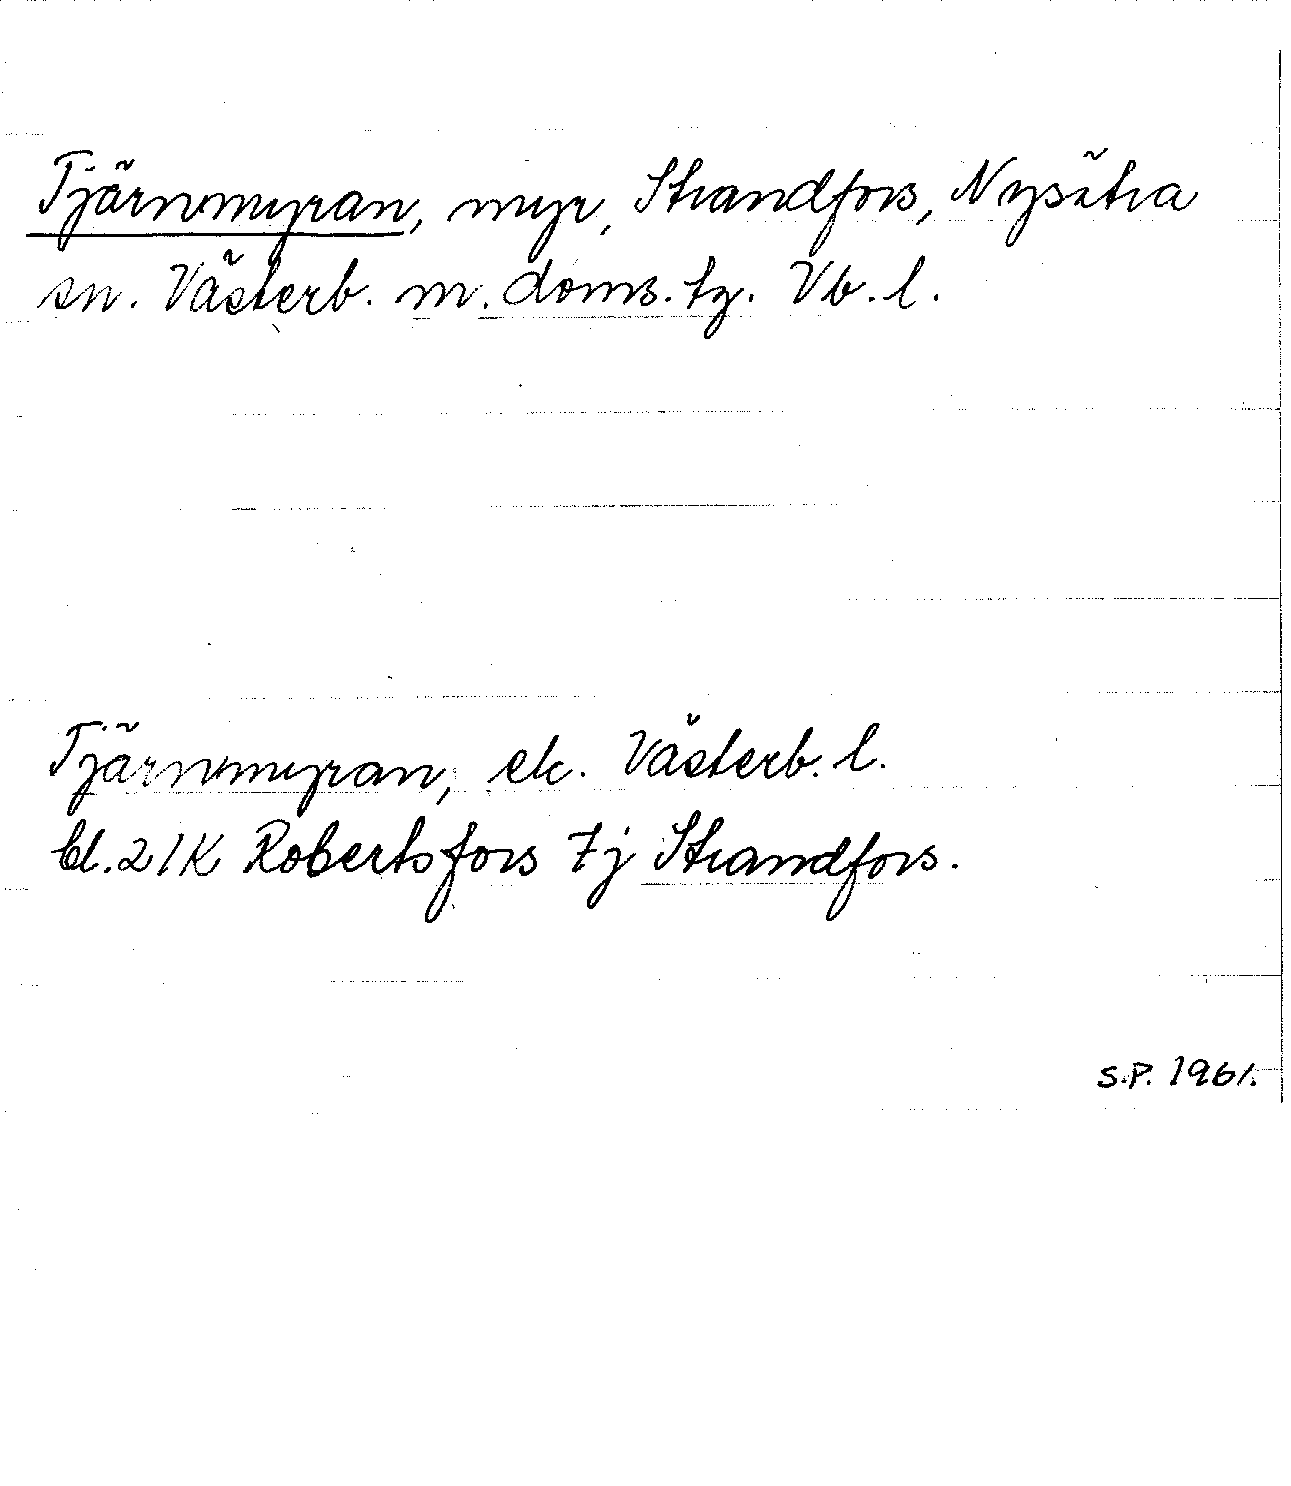 Tjärnmyran, myr, Strandfors, Nysätra
sn. Västerb. m. doms. tg. Vb. l.
Tjärnmyran, ek. Västerb. l.
bl. 21K Robertsfors 7j Strandfors.
S.P. 1961.